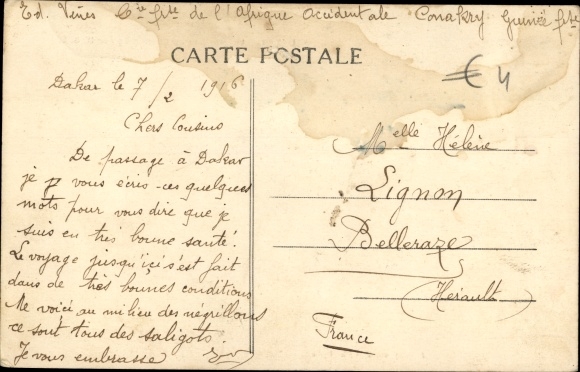 Ed. Vines Cie fse de l'Afrique Occidentale Conakry Guinée fse
CARTE POSTALE
€ 4
Dakar le 7/2 1916
Chers Cousins
De passage à Dakar
je vous écris ces quelques
mots pour vous dire que je
suis en très bonne santé.
Le voyage jusqu'ici s'est fait
dans de très bonnes conditions
Me voici au milieu des négrillons
ce sont tous des saligots.
Je vous embrasse
Melle Hélène
Lignon
Belleraze
(Herault)
France